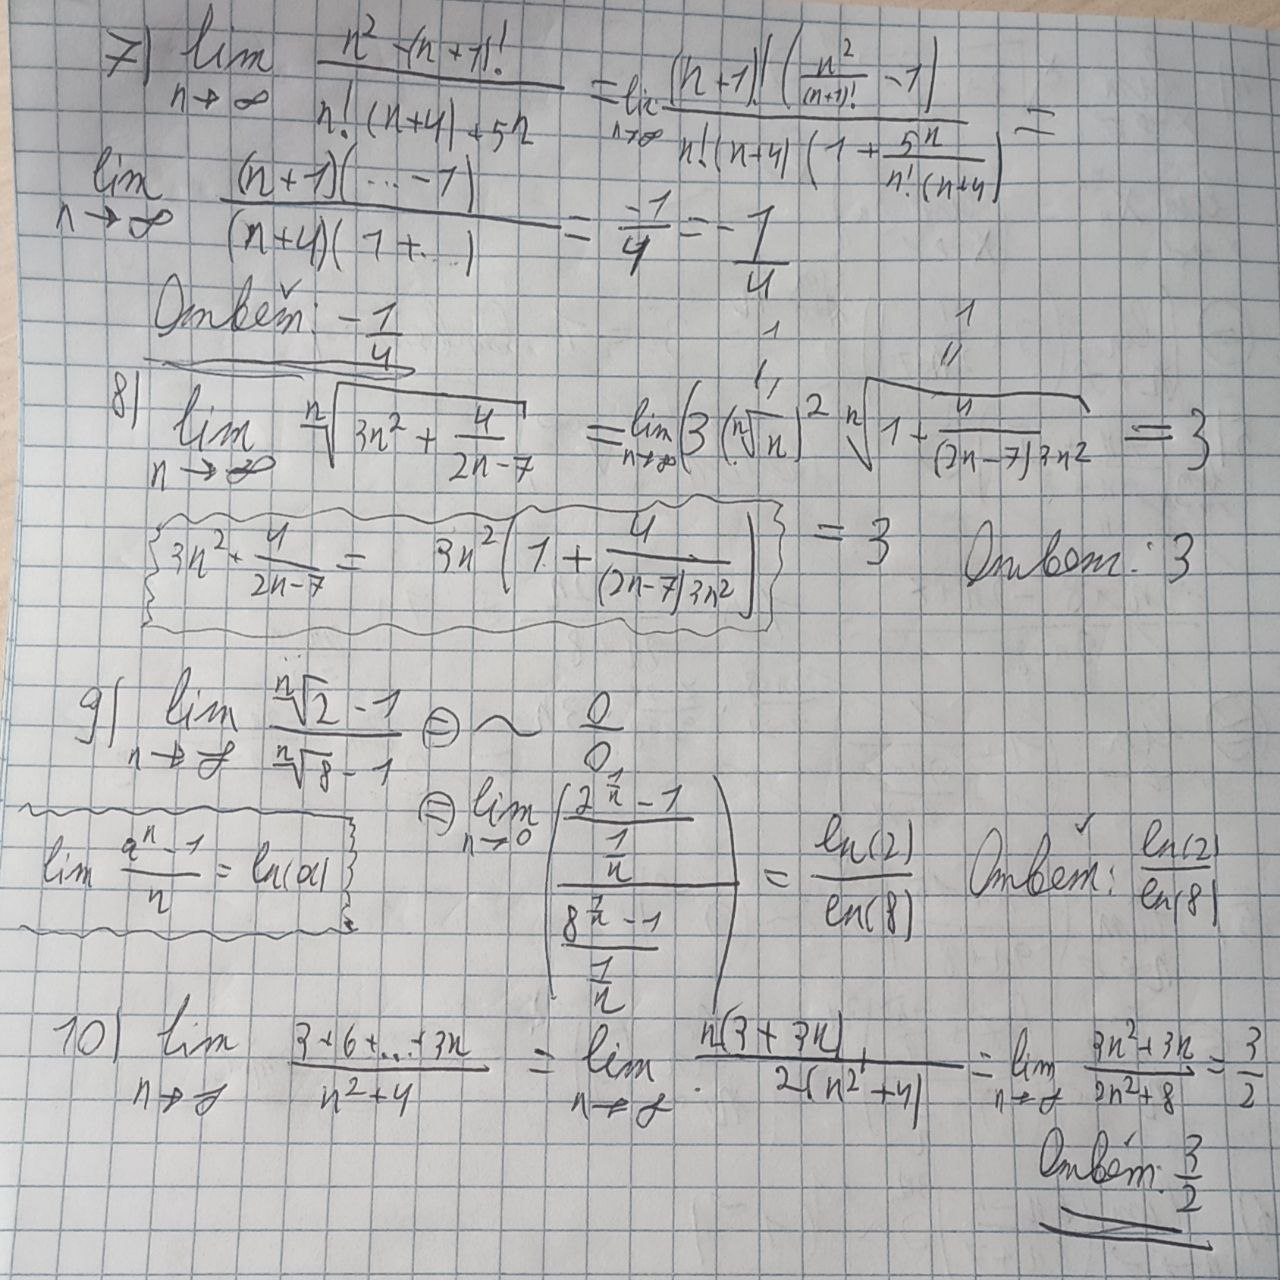 7) lim n→∞ (n² - (n+1)!) / (n!(n+4)+5n) = lim n→∞ ((n+1)! (n²/(n+1)! - 1)) / (n!(n+4)(1 + 5n/(n!(n+4)))) =
lim n→∞ ((n+1)(... -1)) / ((n+4)(1+...)) = -1/4 = -1/4
Ответ: -1/4
8) lim n→∞ ⁿ√(3n² + 4/(2n-7)) = lim n→∞ (3 (ⁿ√n)² ⁿ√(1 + 4/((2n-7)3n²)) = 3
3n² + 4/(2n-7) = 3n² (1 + 4/((2n-7)3n²)) = 3 Ответ: 3
9) lim n→∞ (ⁿ√2 - 1)/(ⁿ√8 - 1) ⊜ ~ 0/0
lim (aⁿ-1)/n = ln(a)
⊜ lim n→0 (((2^(1/n) - 1)/(1/n)) / ((8^(1/n) - 1)/(1/n))) = ln(2)/ln(8) Ответ: ln(2)/ln(8)
10) lim n→∞ (3+6+...+3n)/(n²+4) = lim n→∞ n(3+3n)/(2(n²+4)) = lim n→∞ (3n²+3n)/(2n²+8) = 3/2
Ответ: 3/2